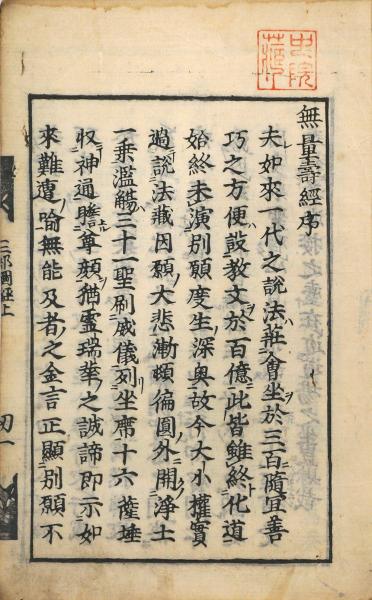 無量壽經序
夫如來一代之說法莊會坐於三百隨宜善
巧之方便設教文於百億此皆雖終化道
始終未演別願度生深奧故今大小權實
過說法藏因願大悲漸頗徧圓外開淨土
一乘濫觴三十一聖刷威儀列坐席十六薩埵
収神通瞻尊顔猶靈瑞華之誠諦即示如
來難遭喻無能及者之金言正顯別願不